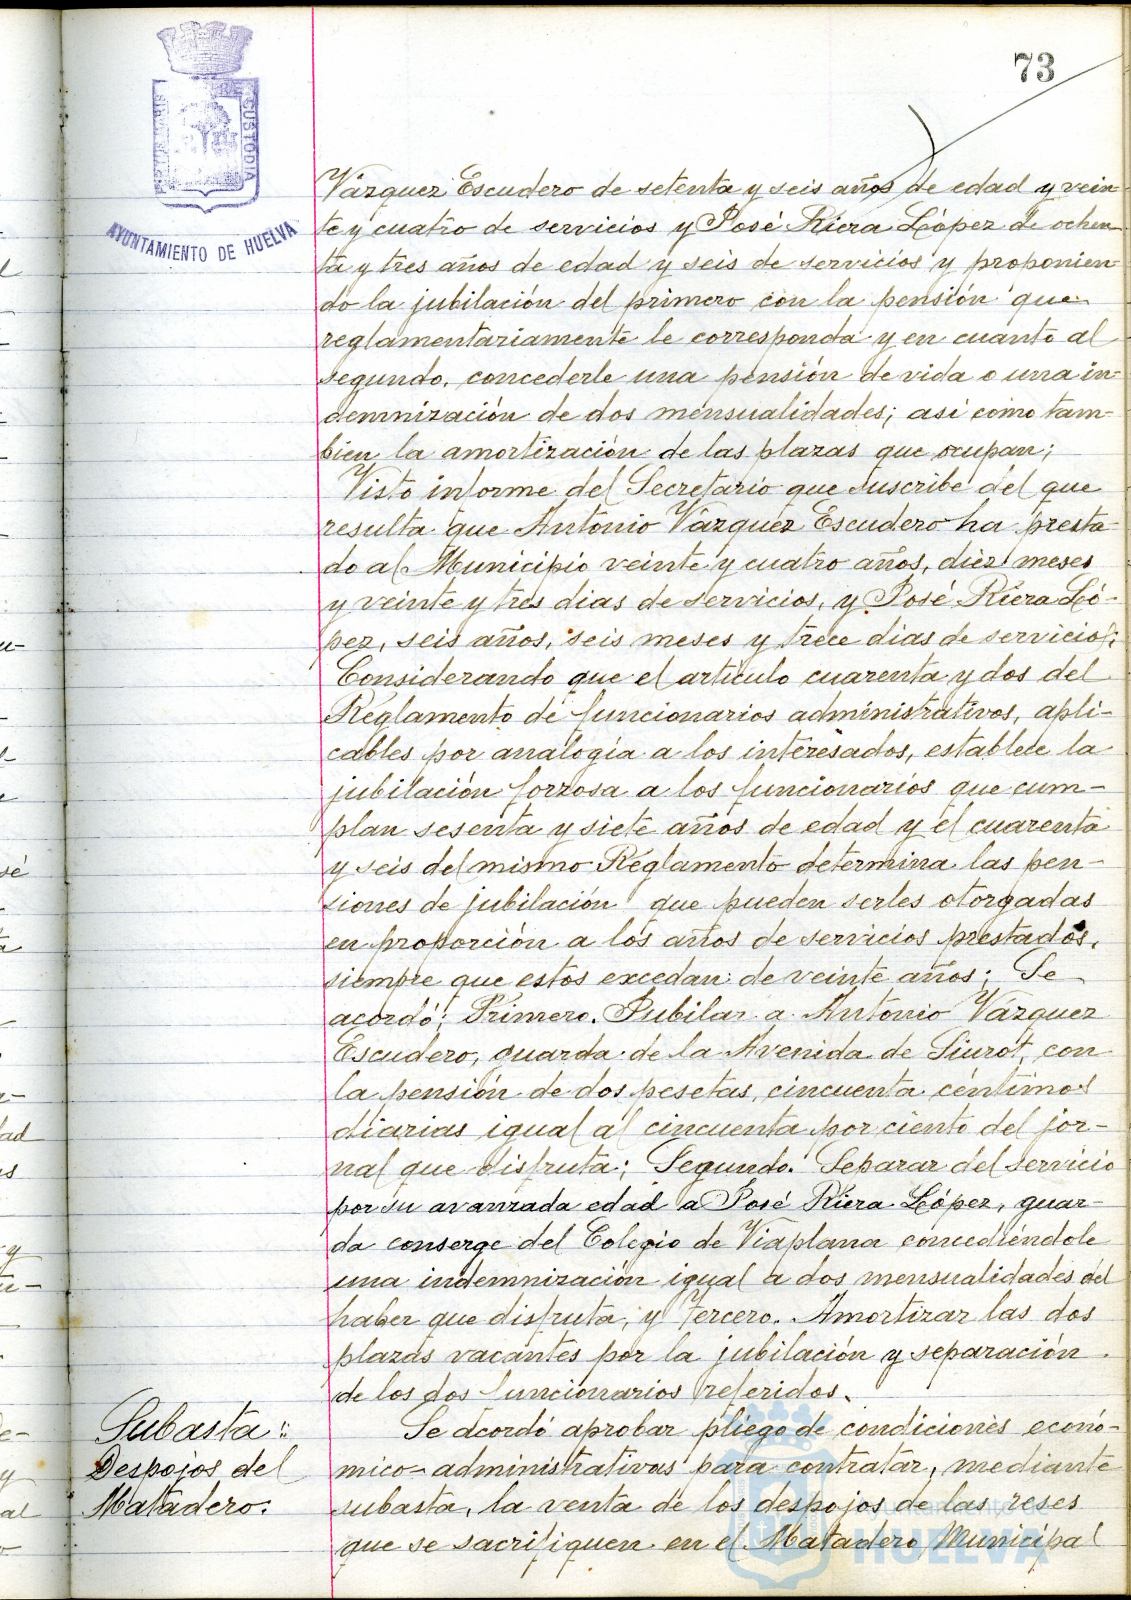 73
CUSTODIA
AYUNTAMIENTO DE HUELVA
Vázquez Escudero de setenta y seis años de edad y vein-
te y cuatro de servicios y José Riera López de ochen-
ta y tres años de edad y seis de servicios y proponien-
do la jubilación del primero con la pensión que
reglamentariamente le corresponda y en cuanto al
segundo, concederle una pensión de vida o una in-
demnización de dos mensualidades; así como tam-
bien la amortización de las plazas que ocupan;
Visto informe del Secretario que suscribe del que
resulta que Antonio Vázquez Escudero ha presta-
do al Municipio veinte y cuatro años, diez meses
y veinte y tres dias de servicios, y José Riera Ló-
pez, seis años, seis meses y trece dias de servicio;
Considerando que el artículo cuarenta y dos del
Reglamento de funcionarios administrativos, apli-
cables por analogía a los interesados, establece la
jubilación forzosa a los funcionarios que cum-
plan sesenta y siete años de edad y el cuarenta
y seis del mismo Reglamento determina las pen-
siones de jubilación que pueden serles otorgadas
en proporción a los años de servicios prestados,
siempre que estos excedan de veinte años; Se
acordó: Primero. Jubilar a Antonio Vázquez
Escudero, guarda de la Avenida de Siurot, con
la pensión de dos pesetas, cincuenta céntimos
diarias igual al cincuenta por ciento del jor-
nal que disfruta; Segundo. Separar del servicio
por su avanzada edad a José Riera López, guar-
da conserge del Colegio de Viaplana concediéndole
una indemnización igual a dos mensualidades del
haber que disfruta, y Tercero. Amortizar las dos
plazas vacantes por la jubilación y separación
de los dos funcionarios referidos.
Subasta:
Despojos del
Matadero.
Se acordó aprobar pliego de condiciones econó-
mico-administrativas para contratar, mediante
subasta, la venta de los despojos de las reses
que se sacrifiquen en el Matadero Municipal
Ayuntamiento de
HUELVA